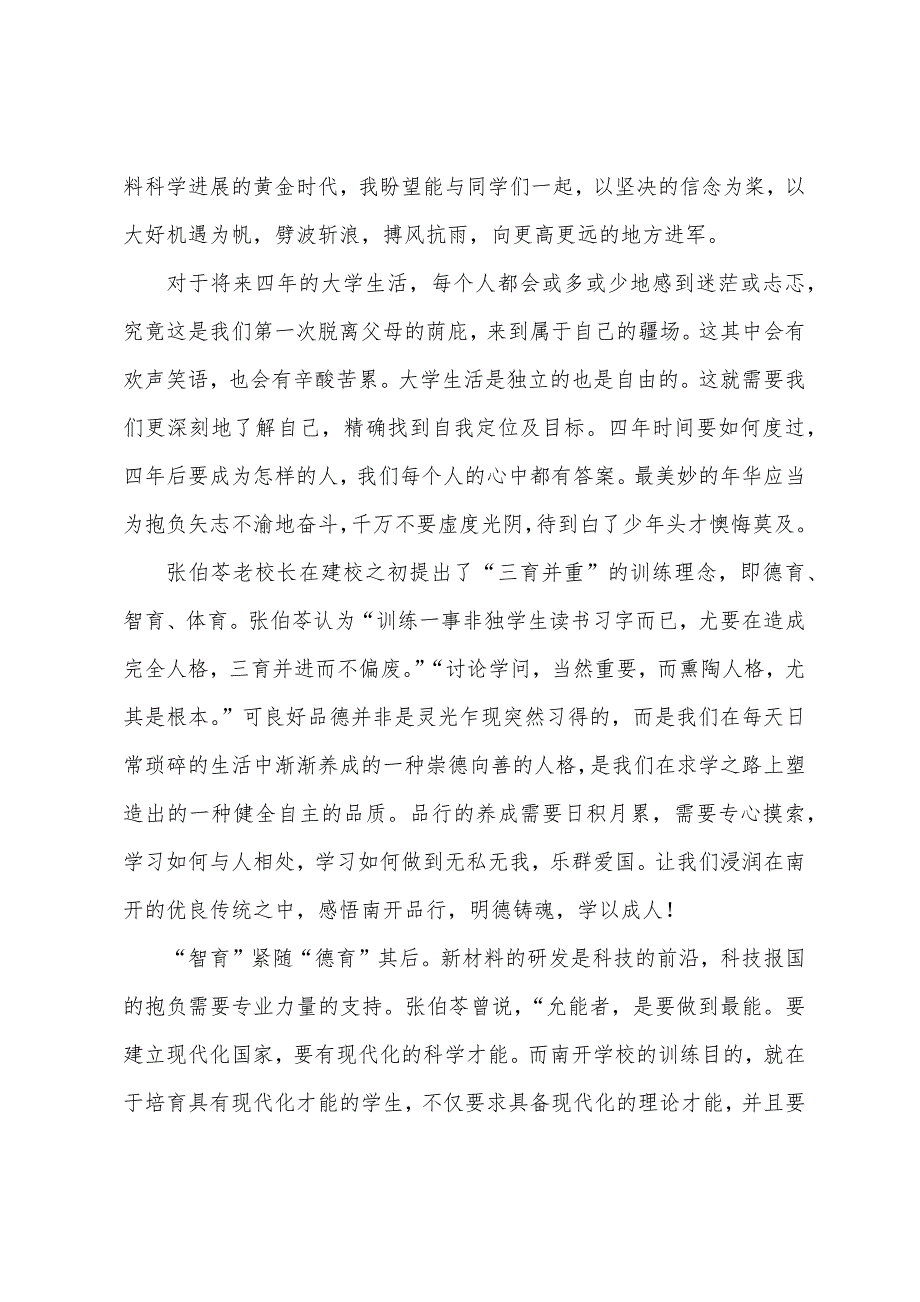 料科学进展的黄金时代，我盼望能与同学们一起，以坚决的信念为桨，以
大好机遇为帆，劈波斩浪，搏风抗雨，向更高更远的地方进军。
对于将来四年的大学生活，每个人都会或多或少地感到迷茫或忐忑，
究竟这是我们第一次脱离父母的荫庇，来到属于自己的疆场。这其中会有
欢声笑语，也会有辛酸苦累。大学生活是独立的也是自由的。这就需要我
们更深刻地了解自己，精确找到自我定位及目标。四年时间要如何度过，
四年后要成为怎样的人，我们每个人的心中都有答案。最美妙的年华应当
为抱负矢志不渝地奋斗，千万不要虚度光阴，待到白了少年头才懊悔莫及。
张伯苓老校长在建校之初提出了“三育并重”的训练理念，即德育、
智育、体育。张伯苓认为“训练一事非独学生读书习字而已，尤要在造成
完全人格，三育并进而不偏废。”“讨论学问，当然重要，而熏陶人格，尤
其是根本。”可良好品德并非是灵光乍现突然习得的，而是我们在每天日
常琐碎的生活中渐渐养成的一种崇德向善的人格，是我们在求学之路上塑
造出的一种健全自主的品质。品行的养成需要日积月累，需要专心摸索，
学习如何与人相处，学习如何做到无私无我，乐群爱国。让我们浸润在南
开的优良传统之中，感悟南开品行，明德铸魂，学以成人！
“智育”紧随“德育”其后。新材料的研发是科技的前沿，科技报国
的抱负需要专业力量的支持。张伯苓曾说，“允能者，是要做到最能。要
建立现代化国家，要有现代化的科学才能。而南开学校的训练目的，就在
于培育具有现代化才能的学生，不仅要求具备现代化的理论才能，并且要